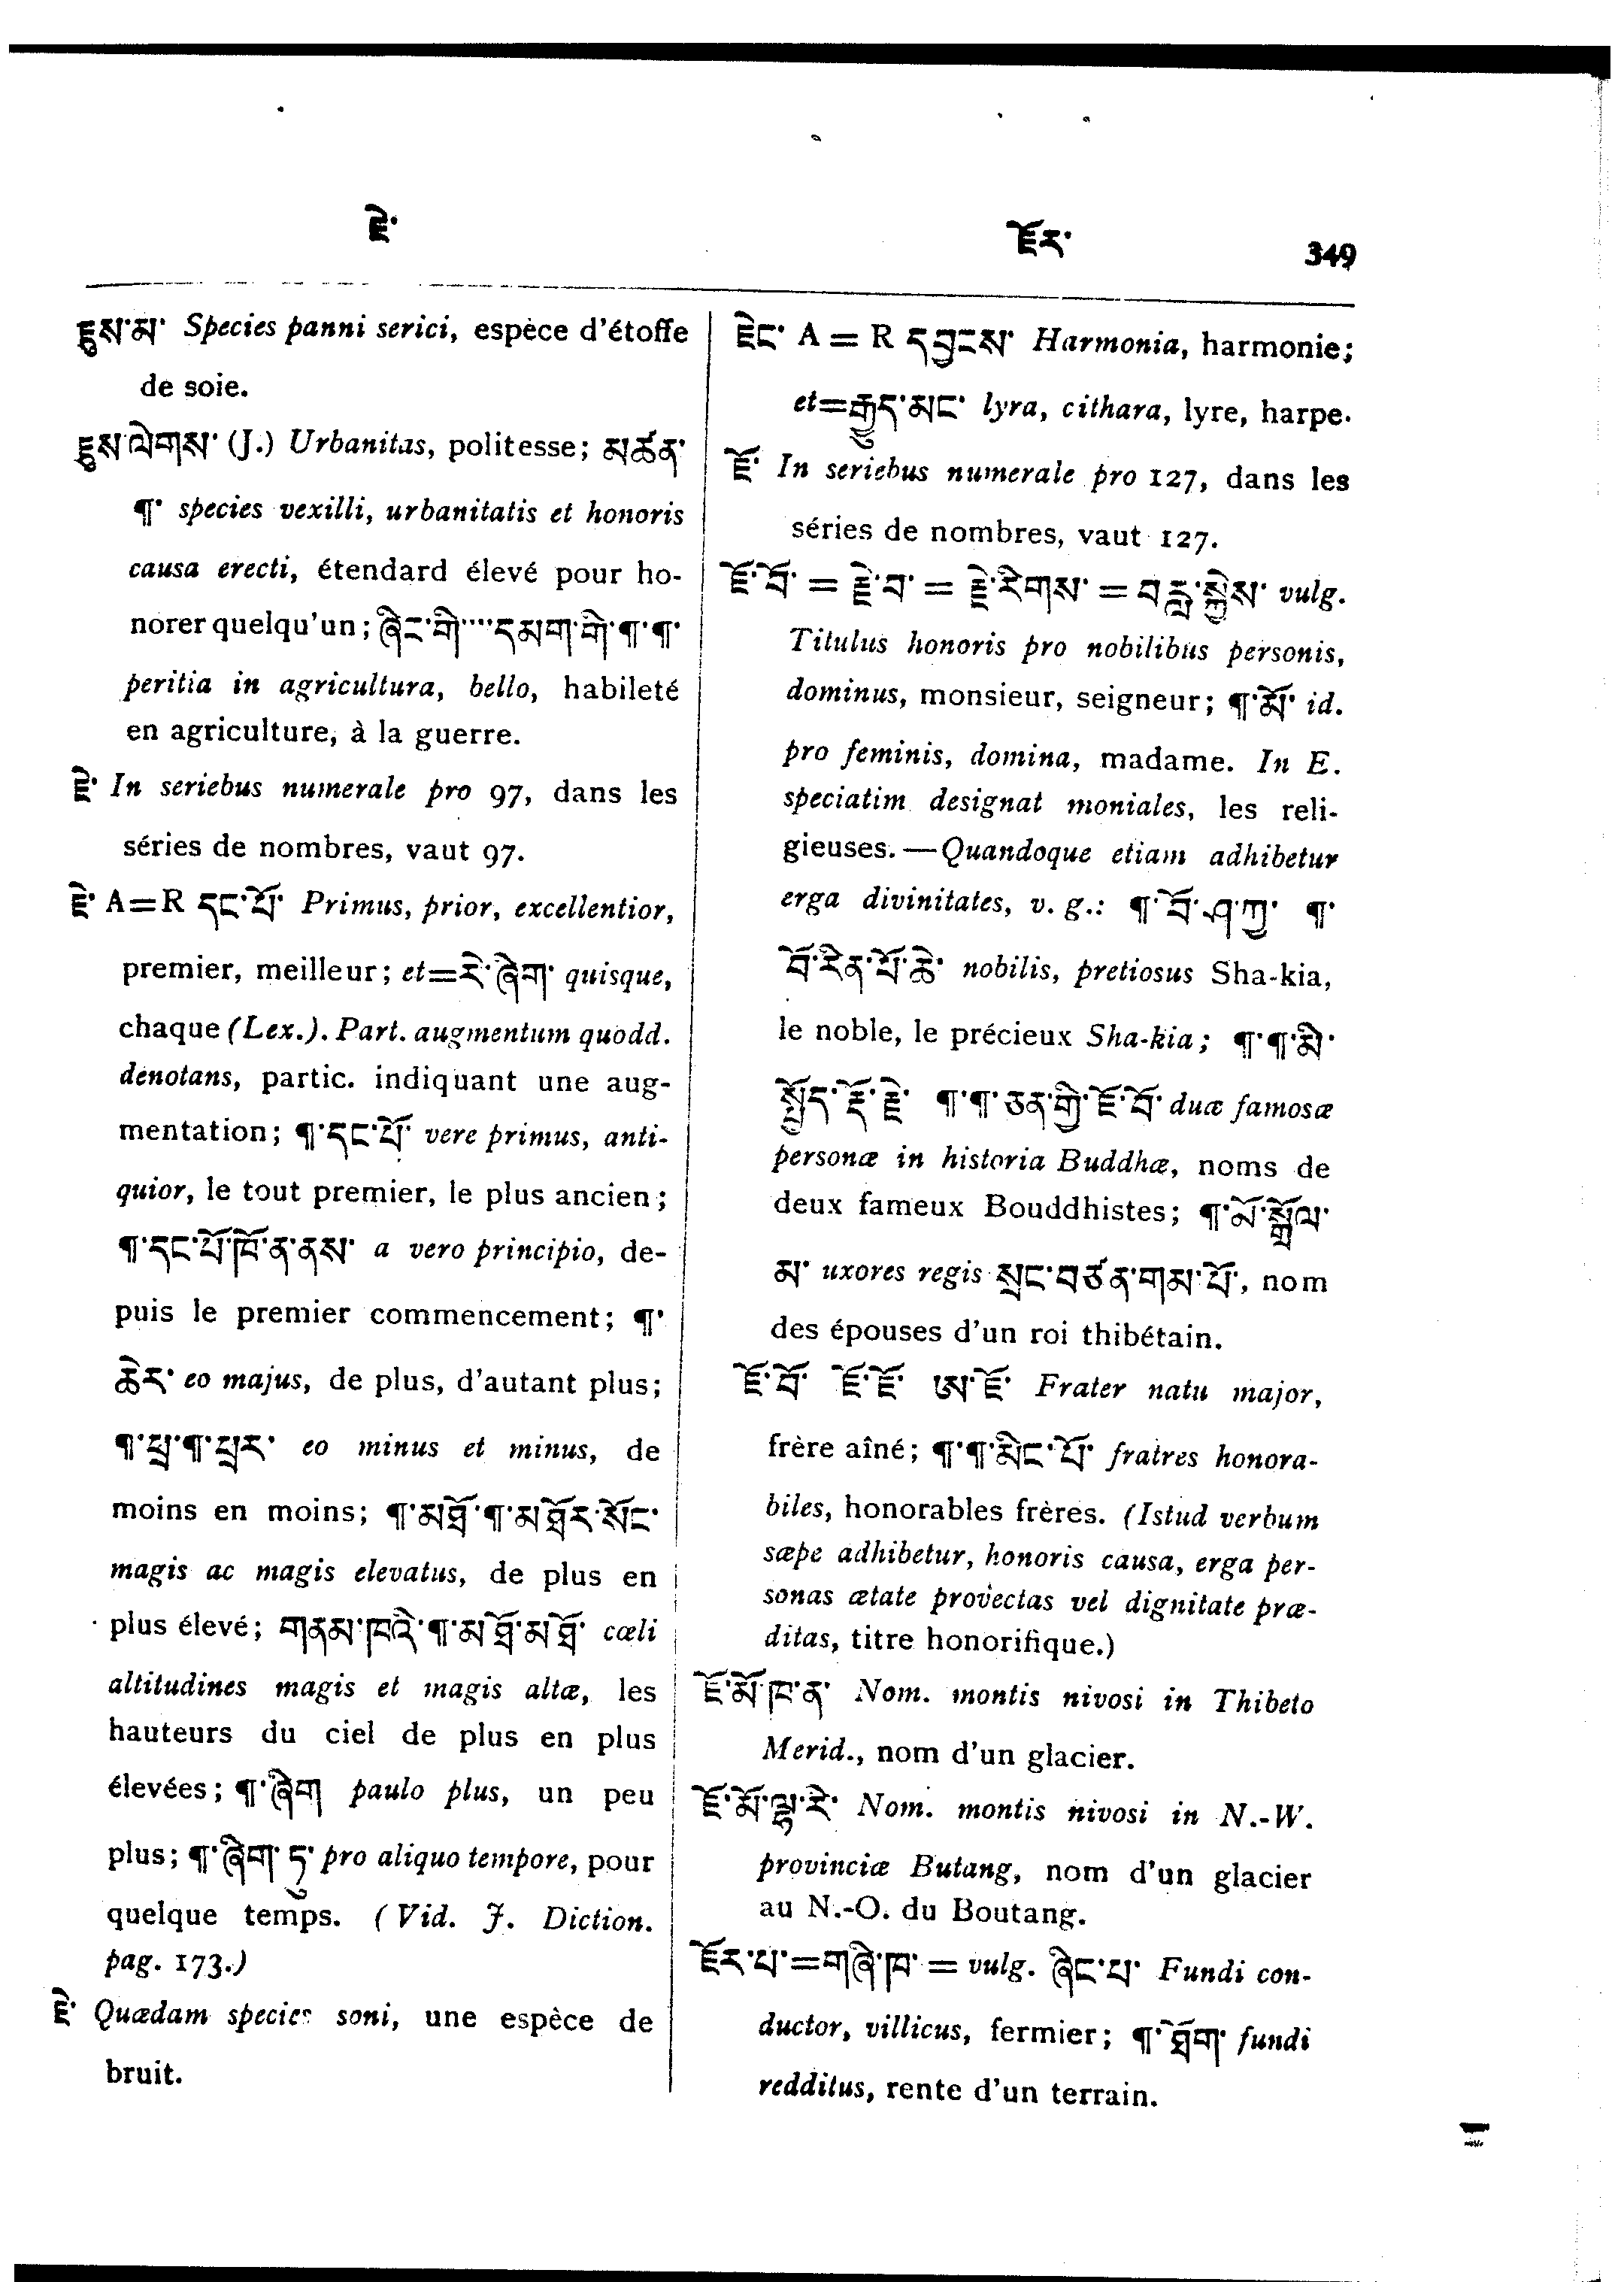 ཇེ་
ཇོར་
349
ཇུས་མ་ Species panni serici, espèce d'étoffe
de soie.
ཇུས་ལེགས་ (J.) Urbanitas, politesse; མཚན་
¶་ species vexilli, urbanitatis et honoris
causa erecti, étendard élevé pour ho-
norer quelqu'un; ཞིང་གི་....དམག་གི་¶་¶་
peritia in agricultura, bello, habileté
en agriculture, à la guerre.
ཇེ་ In seriebus numerale pro 97, dans les
séries de nombres, vaut 97.
ཇེ་ A=R དང་པོ་ Primus, prior, excellentior,
premier, meilleur; et=རེ་ཞིག་ quisque,
chaque (Lex.). Part. augmentum quodd.
denotans, partic. indiquant une aug-
mentation; ¶་དང་པོ་ vere primus, anti-
quior, le tout premier, le plus ancien;
¶་དང་པོ་ཁོ་ན་ནས་ a vero principio, de-
puis le premier commencement; ¶་
ཆེར་ eo majus, de plus, d'autant plus;
¶་ཕྲ་¶་ཕྲར་ eo minus et minus, de
moins en moins; ¶་མཐོ་¶་མཐོར་སོང་
magis ac magis elevatus, de plus en
plus élevé; གནམ་ཁའི་¶་མཐོ་མཐོ་ cœli
altitudines magis et magis altæ, les
hauteurs du ciel de plus en plus
élevées; ¶་ཞིག paulo plus, un peu
plus; ¶་ཞིག་ཏུ་ pro aliquo tempore, pour
quelque temps. (Vid. J. Diction.
pag. 173.)
ཇེ་ Quædam species soni, une espèce de
bruit.
ཇེང་ A = R དབྱངས་ Harmonia, harmonie;
et=རྒྱུད་མང་ lyra, cithara, lyre, harpe.
ཇོ་ In seriebus numerale pro 127, dans les
séries de nombres, vaut 127.
ཇོ་བོ་ = རྗེ་བ་ = རྗེ་རིགས་ = བརླ་སྐྱེས་ vulg.
Titulus honoris pro nobilibus personis,
dominus, monsieur, seigneur; ¶་མོ་ id.
pro feminis, domina, madame. In E.
speciatim designat moniales, les reli-
gieuses. — Quandoque etiam adhibetur
erga divinitates, v. g.: ¶་བོ་ཤ་ཀྱ་ ¶་
བོ་རིན་པོ་ཆེ་ nobilis, pretiosus Sha-kia,
le noble, le précieux Sha-kia; ¶་¶་མི་
སྤྱོད་རྡོ་རྗེ་ ¶་¶་ཅན་གྱི་ཇོ་བོ་ duæ famosæ
personæ in historia Buddhæ, noms de
deux fameux Bouddhistes; ¶་མོ་སྒྲོལ་
མ་ uxores regis སྲང་བཙན་གམ་པོ་, nom
des épouses d'un roi thibétain.
ཇོ་བོ་ ཇོ་ཇོ་ ཨ་ཇོ་ Frater natu major,
frère aîné; ¶་¶་མིང་པོ་ fratres honora-
biles, honorables frères. (Istud verbum
sæpe adhibetur, honoris causa, erga per-
sonas ætate provectas vel dignitate præ-
ditas, titre honorifique.)
ཇོ་མོ་ཁ་ན་ Nom. montis nivosi in Thibeto
Merid., nom d'un glacier.
ཇོ་མོ་ལྷ་རེ་ Nom. montis nivosi in N.-W.
provinciæ Butang, nom d'un glacier
au N.-O. du Boutang.
ཇོར་པ་=གཞི་ཁ་ = vulg. ཞིང་པ་ Fundi con-
ductor, villicus, fermier; ¶་ཐོག་ fundi
redditus, rente d'un terrain.